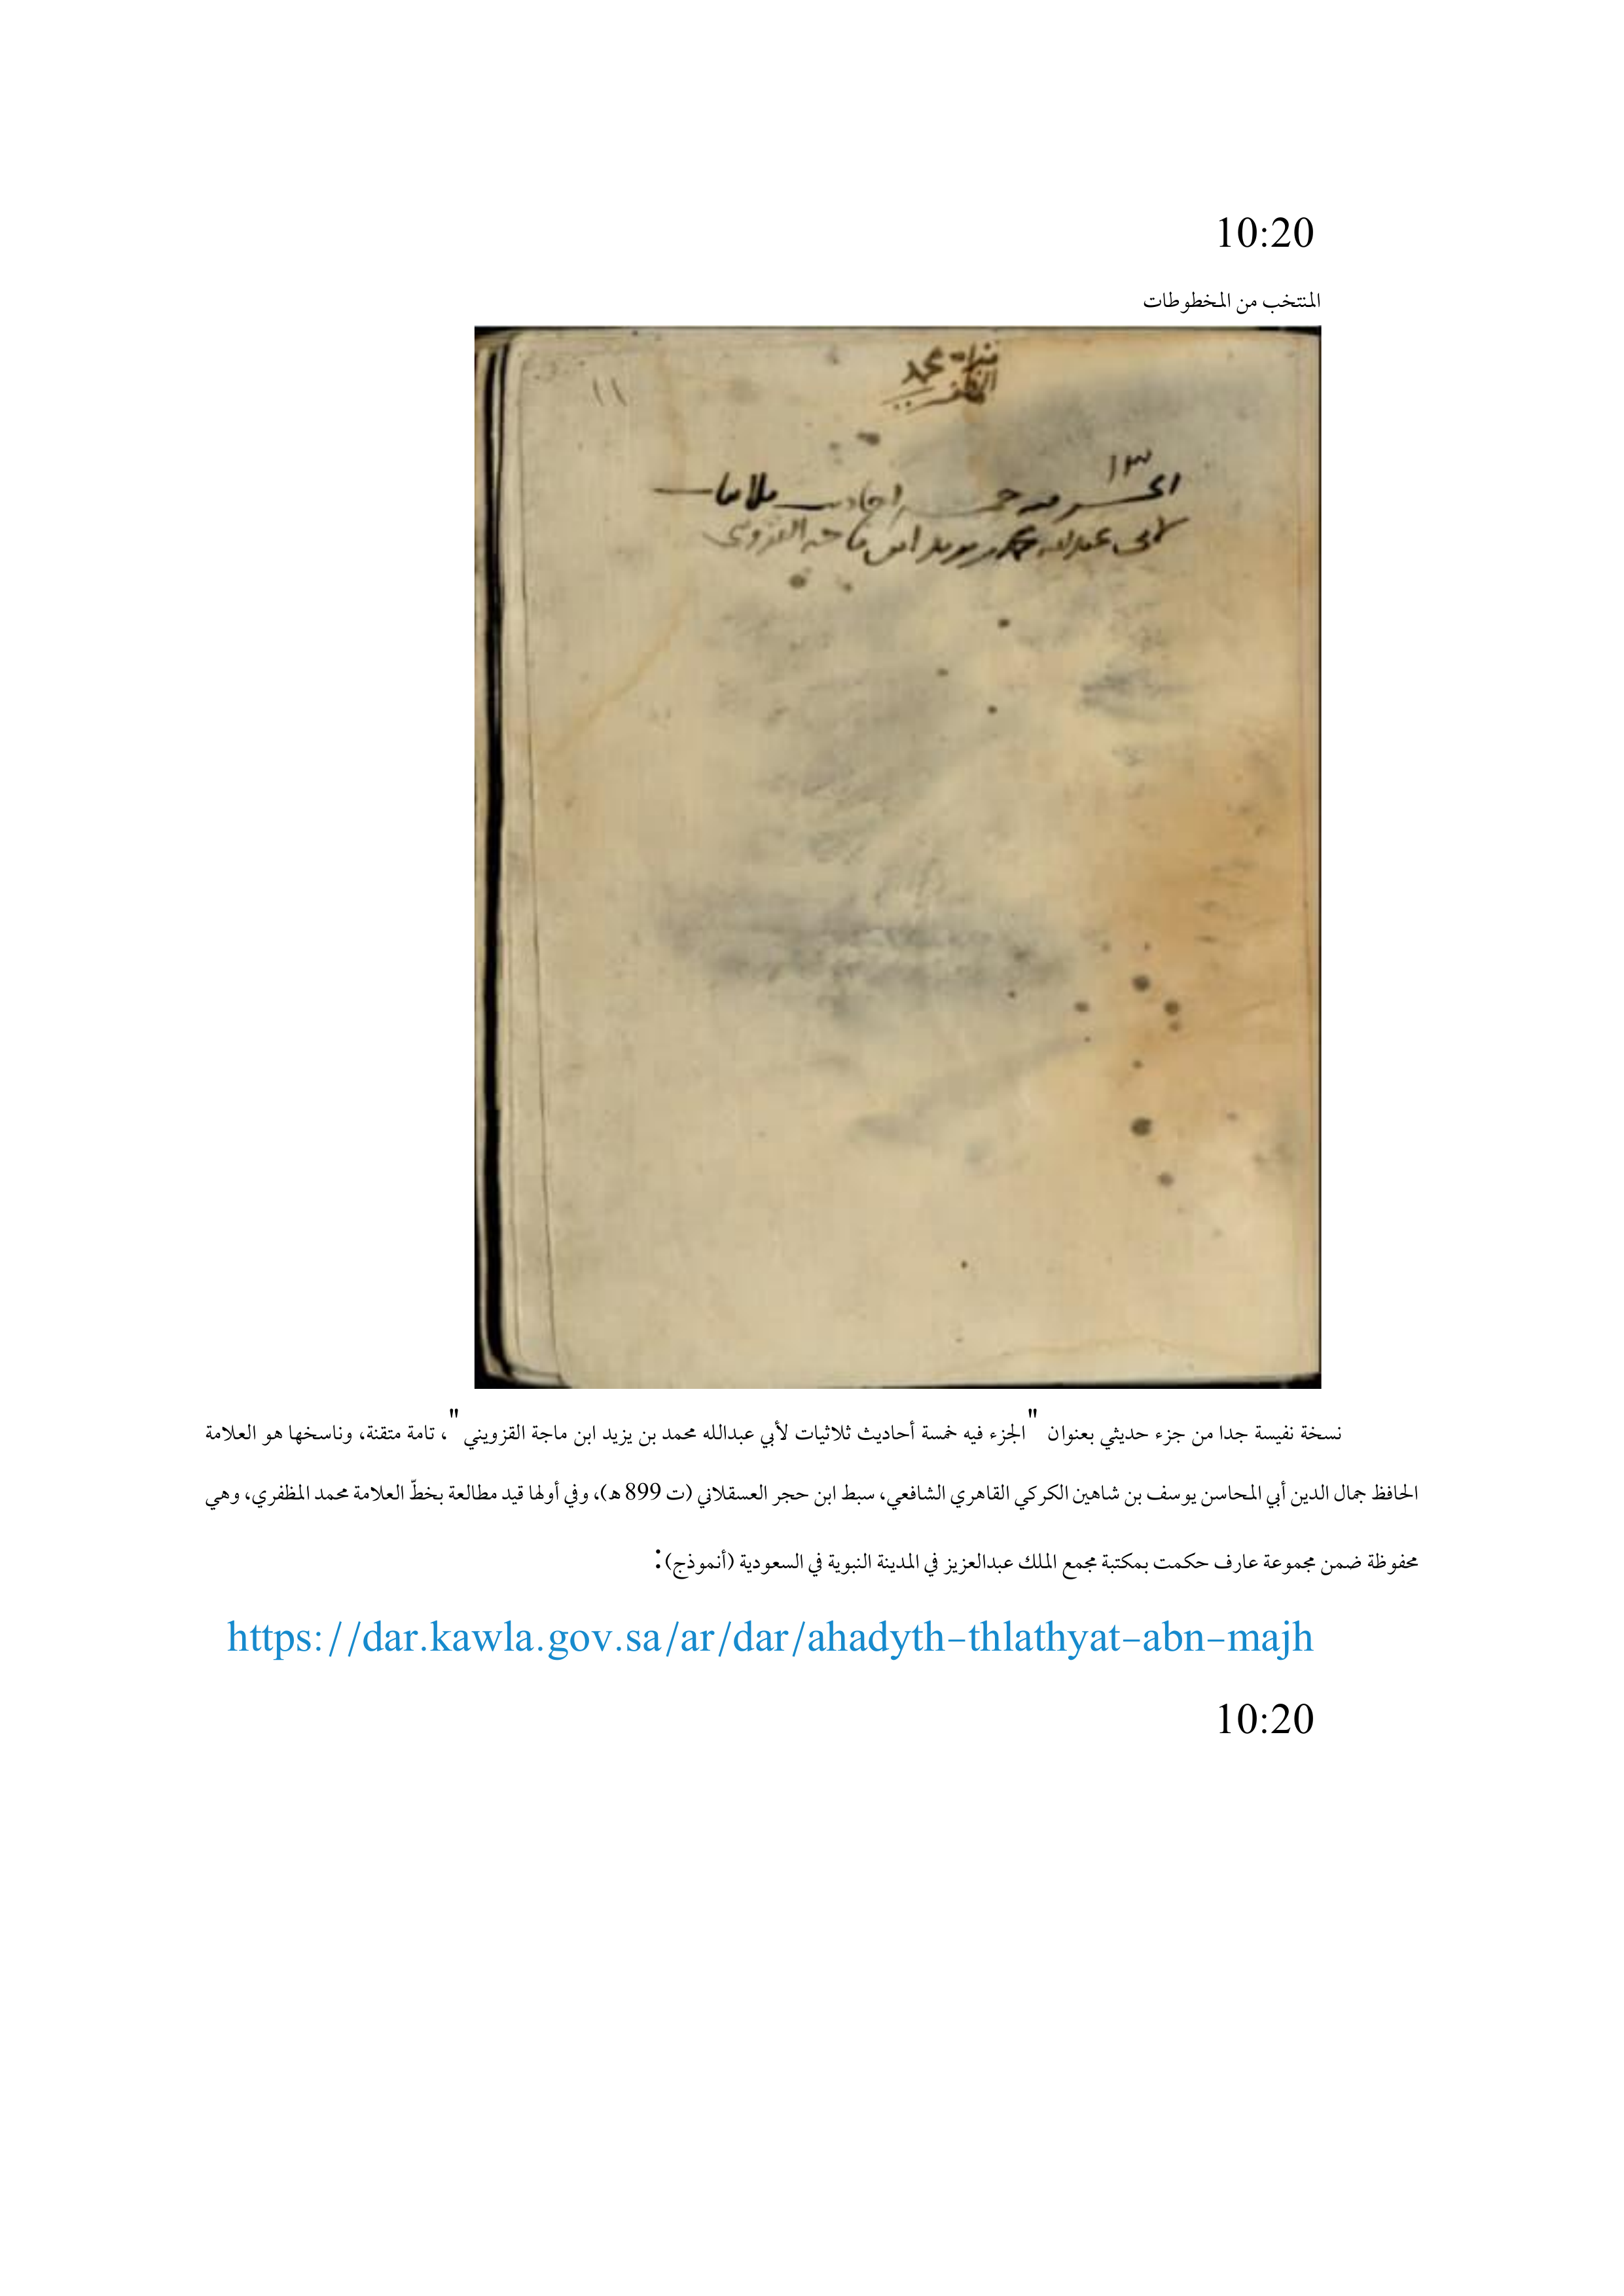 10:20
المنتخب من المخطوطات
محمد
١١
١٣
الجزء فيه خمسة احاديث ثلاثيات
لابي عبدالله محمد بن يزيد ابن ماجه القزويني
نسخة نفيسة جدا من جزء حديثي بعنوان "الجزء فيه خمسة أحاديث ثلاثيات لأبي عبدالله محمد بن يزيد ابن ماجة القزويني"، تامة متقنة، وناسخها هو العلامة
الحافظ جمال الدين أبي المحاسن يوسف بن شاهين الكركي القاهري الشافعي، سبط ابن حجر العسقلاني (ت 899 هـ)، وفي أولها قيد مطالعة بخطّ العلامة محمد المظفري، وهي
محفوظة ضمن مجموعة عارف حكمت بمكتبة مجمع الملك عبدالعزيز في المدينة النبوية في السعودية (أنموذج):
https://dar.kawla.gov.sa/ar/dar/ahadyth-thlathyat-abn-majh
10:20